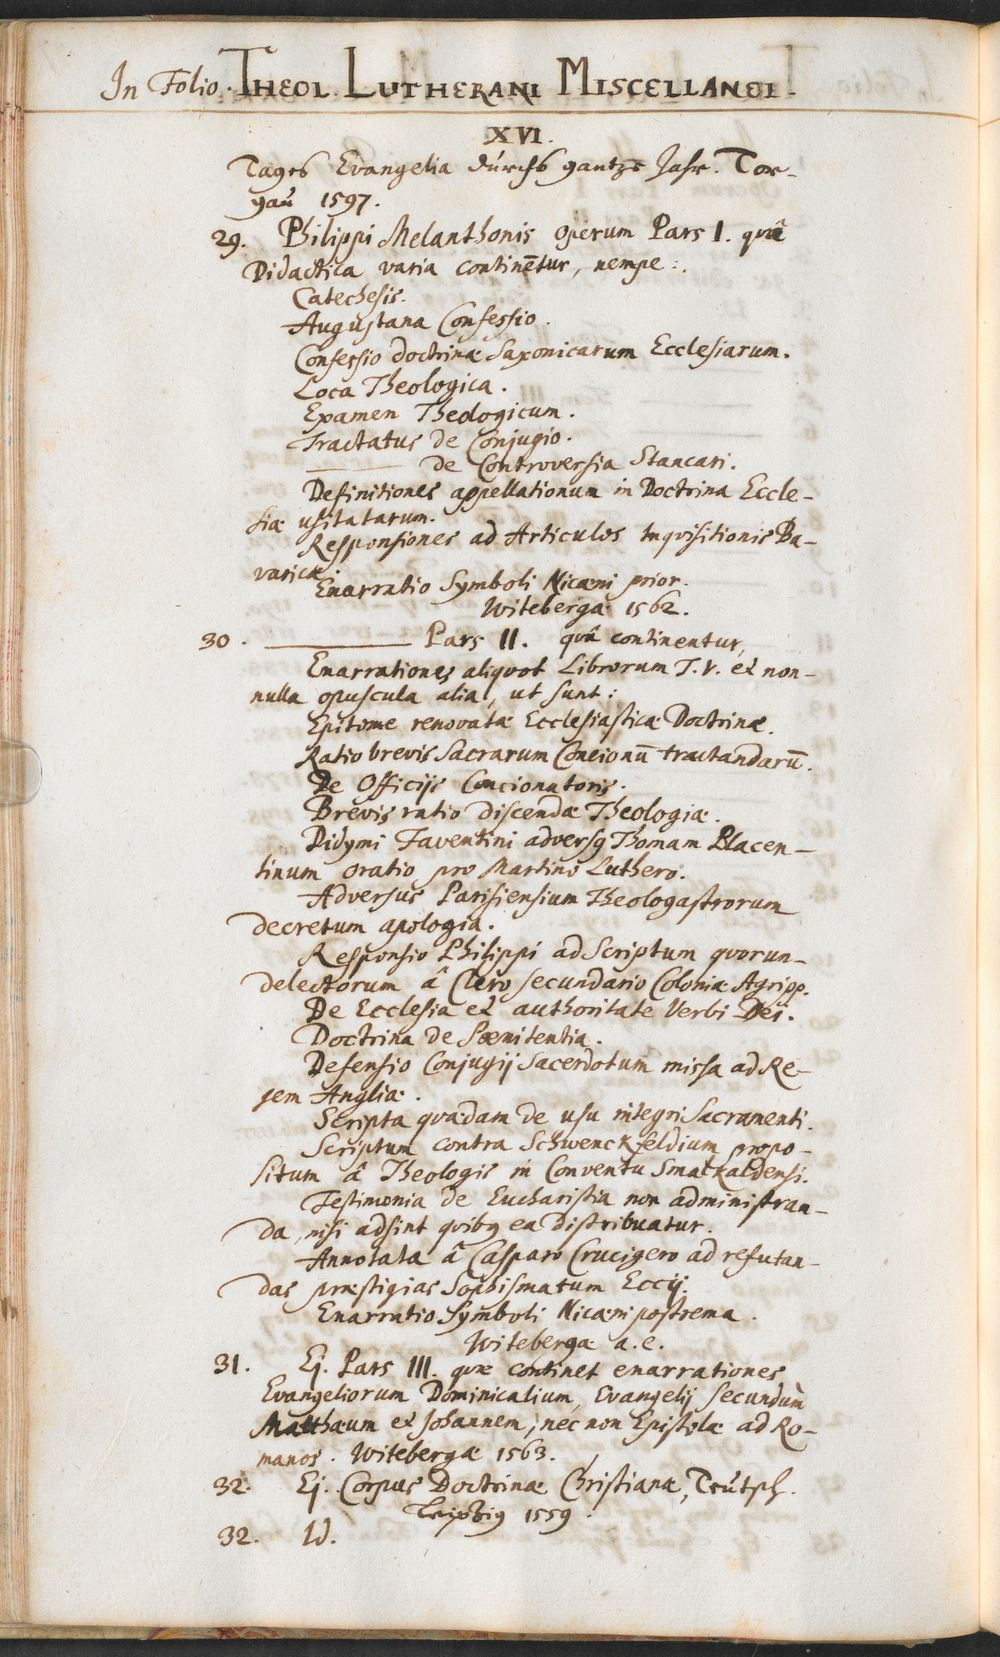 In Folio. THEOL. LUTHERANI MISCELLANEI.
XVI.
Tages Evangelia durchs gantze Jahr. Tor-
gau 1597.
29. Philippi Melanthonis operum Pars I. quâ
Didactica varia continētur, nempe:
Catechesis.
Augustana Confessio.
Confessio doctrinæ Saxonicarum Ecclesiarum.
Loca Theologica.
Examen Theologicum.
Tractatus de Conjugio.
——— de Controversia Stancari.
Definitiones appellationum in Doctrina Eccle-
siæ usitatarum.
Responsiones ad Articulos Inquisitionis Ba-
varicæ.
Enarratio Symboli Nicæni prior.
Witebergæ 1562.
30. ——— Pars II. quâ continentur,
Enarrationes aliquot Librorum T.V. et non-
nulla opuscula alia, ut sunt:
Epitome renovatæ Ecclesiasticæ Doctrinæ.
Ratio brevis Sacrarum Concionū tractandarū.
De Officijs Concionatoris.
Brevis ratio discendæ Theologiæ.
Didymi Faventini adversq Thomam Placen-
tinum oratio pro Martino Luthero.
Adversus Parisiensium Theologastrorum
decretum apologia.
Responsio Philippi ad Scriptum quorun-
delectorum â Clero secundario Coloniæ Agripp.
De Ecclesia et authoritate Verbi Dei.
Doctrina de Pœnitentia.
Defensio Conjugij Sacerdotum missa ad Re-
gem Angliæ.
Scripta quædam de usu integri Sacramenti.
Scriptum contra Schwenckfeldium propo-
situm â Theologis in Conventu Smalkaldensi.
Testimonia de Eucharistia non administran-
da, nisi adsint quibq ea distribuatur.
Annotata â Casparo Crucigero ad refutan-
das præstigias Sophismatum Eccij.
Enarratio Symboli Nicæni postrema.
Witebergæ a. e.
31. Ej. Pars III. quæ continet enarrationes
Evangeliorum Dominicalium, Evangelij secundùm
Matthæum et Johannem, nec non Epistolæ ad Ro-
manos. Witebergæ 1563.
32. Ej. Corpus Doctrinæ Christianæ, Teutsch.
Leipzig 1559.
32. Id.